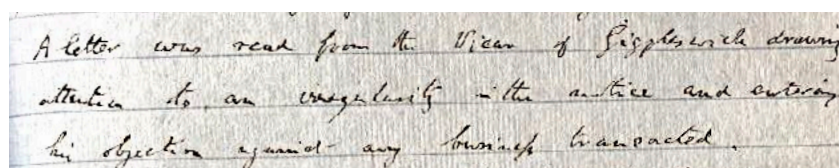 A letter was read from the Vicar of Giggleswick drawing
attention to an irregularity in the notice and entering
his objection against any business transacted.